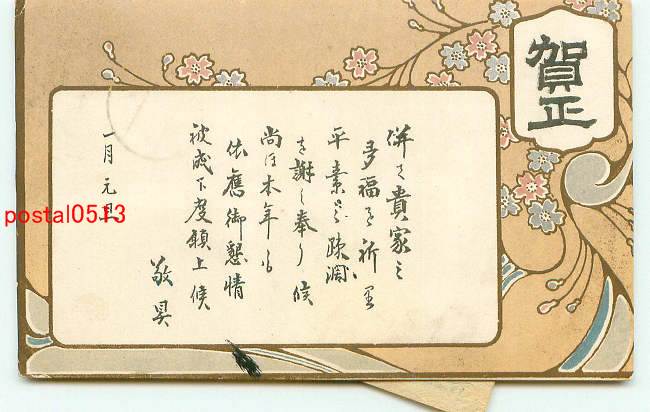 賀正
併て貴家之
多福を祈り
平素之疎濶
を謝し奉り候
尚ほ本年も
依舊御懇情
被成下度願上候
敬具
一月元旦
postal0513